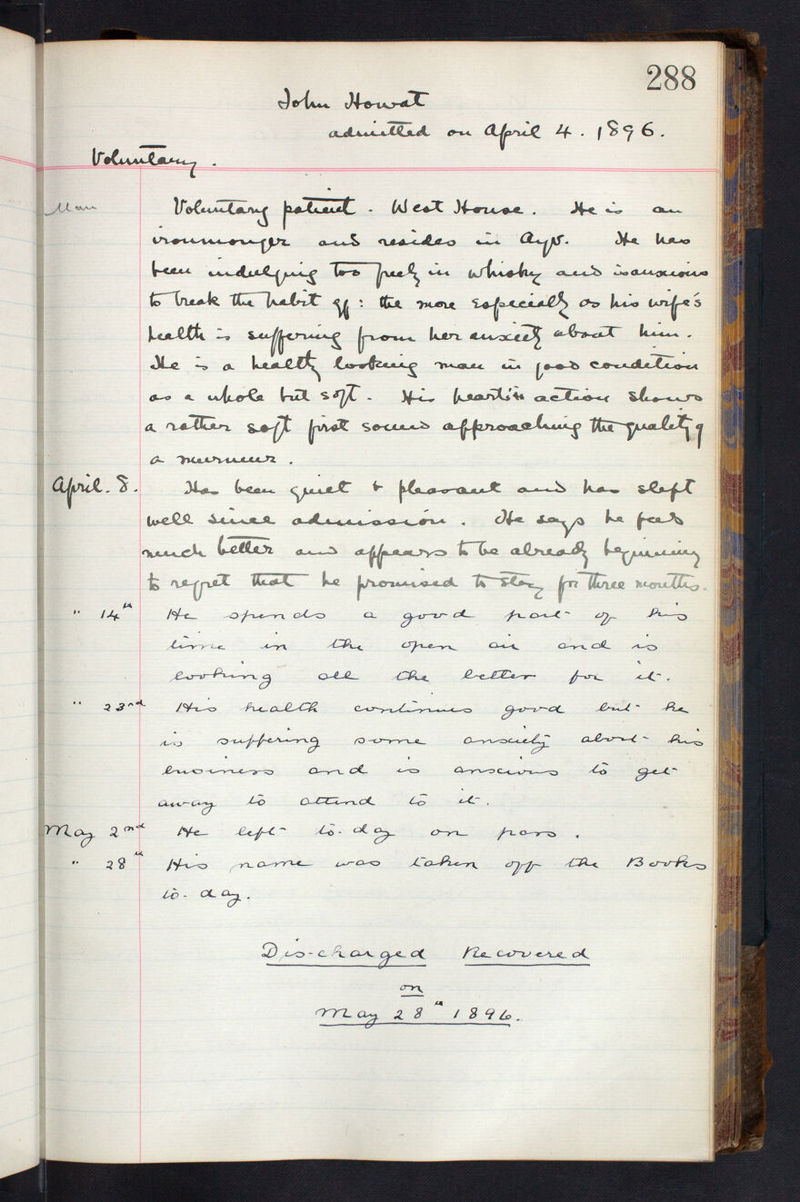 288
John Howat
admitted on April 4. 1896.
Voluntary.
Voluntary patient. West House. He is an
ironmonger and resides in Ayr. He has
been indulging too freely in whisky and is anxious
to break the habit off: the more especially as his wife's
health is suffering from her anxiety about him.
He is a healthy looking man in good condition
as a whole but soft. His heart's action shows
a rather soft first sound approaching the quality of
a murmur.
April. 8. Has been quiet & pleasant and has slept
well since admission. He says he feels
much better and appears to be already beginning
to regret that he promised to stay for three months.
" 14th He spends a good part of his
time in the open air and is
looking all the better for it.
" 23rd His health continues good but he
is suffering some anxiety about his
business and is anxious to get
away to attend to it.
May 2nd He left to-day on pass.
" 28th His name was taken off the Books
to-day.
Discharged Recovered
on
May 28th 1896.